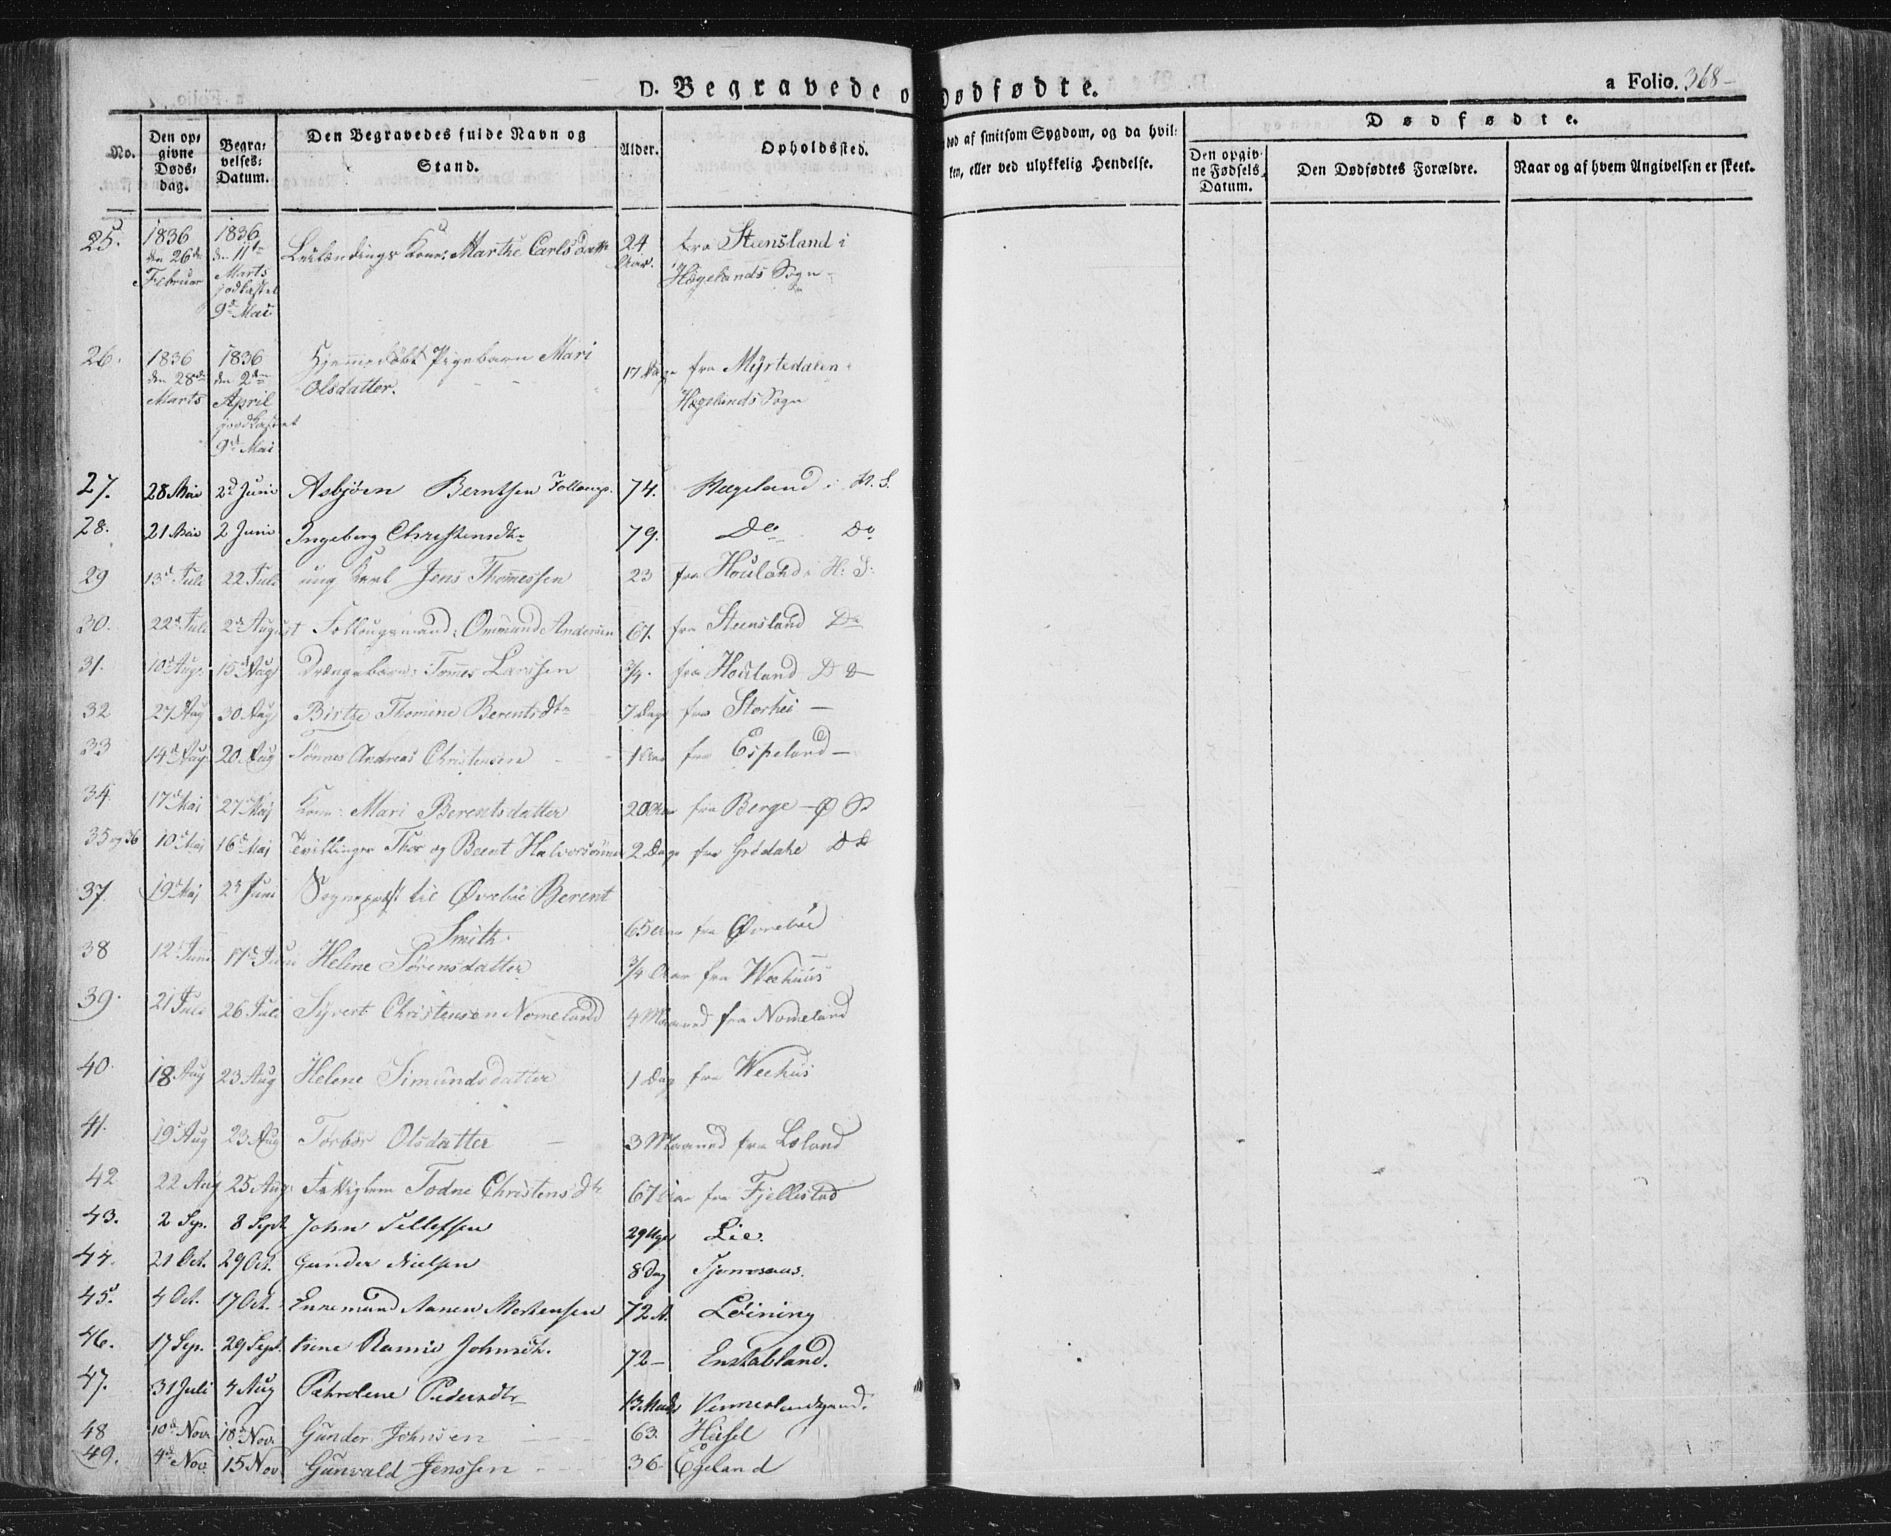 D. Begravede o
Dødfødte.
a Folio. 368
No.
Den op-
givne
Døds-
dag.
Begra-
velses-
Datum.
Den Begravedes fulde Navn og
Stand.
Alder.
Opholdssted.
død af smitsom Sygdom, og da hvil-
ken, eller ved ulykkelig Hendelse.
Dødfødte.
Den opgiv-
ne Fødsels
Datum.
Den Dødfødtes Forældre.
Naar og af hvem Angivelsen er skeet.
25. 1836 den 26de Februar 1836 den 11te Marts jordkastet 9d Mai Leilændings Kone: Marthe Carlsdatter 24 Aar. fra Steensland i
Hægelands Sogn
26. 1836 den 28de Marts 1836 den 2den April jordkastet 9d Mai Hjemmedøbt Pigebarn Mari
Olsdatter. 17 Dage fra Myrtedalen
Hægelands Sogn
27. 28 Mai 2d Juni Asbjörn Berntsen 74. Hægeland i H. S.
28. 21 Mai 2 Juni Ingeborg Christensdtr 79. Do Do
29 13d Juli 22 Juli ung Karl Jens Thomessen 23 fra Houland i H: S:
30. 22d Juli 2d August Follougsmand: Ommund Andersen 67. fra Steensland Do
31. 10d Aug. 15d Aug Drængebarn: Tomes Larssen 3/4. fra Houland Do
32 27 Aug 30 Aug Birthe Thomine Berentsdtr 7 Dage fra Storhei —
33 14d Aug. 20. Aug Tønnes Andreas Christensen 1 Aar fra Espeland —
34. 17d Mai 27d Maj Kone: Mari Berentsdatter 20 Aar fra Berge — Ø S
35 og 36 10d Maj 16d Maj Tvillinger Thor og Berent Halvorsønner 2 Dage fra Grödahe Do
37. 19d Maj 2d Juni Sognepræst til Øvrebøe Berent
Smith. 65 Aar fra Øvrebøe
38 12d Juni 17d Juni Helene Sørensdatter 3/4 Aar fra Weehuus
39. 21 Juli 26 Juli Syvert Christensen Nomeland 4 Maaned fra Nomeland
40. 18 Aug 23 Aug Helene Simundsdatter 1 Dag fra Weehus
41. 19d Aug 23 Aug Torbør Olsdatter 3 Maaned fra Løland
42 22 Aug 25 Aug. Fattiglem Todne Christensdtr 67 Aar fra Fjellestad
43. 2 Sep. 8 Sept John Tellefsen 29 Uger Lie.
44. 21 Oct. 29 Oct. Gunder Nielsen 8 Dag
45. 4 Oct. 17 Oct. Aanen Mortensen 72 A. Löining
46. 17 Sep. 29 Sept. Kone Johnsdtr. 72 — Enstabland.
47. 31 Juli 4 Aug Pedersdtr
48 10d Nov. 18d Nov. Gunder Johnsen 63. Husel
49. 4d Nov. 15 Nov Gunvald Jenssen 36 Egeland